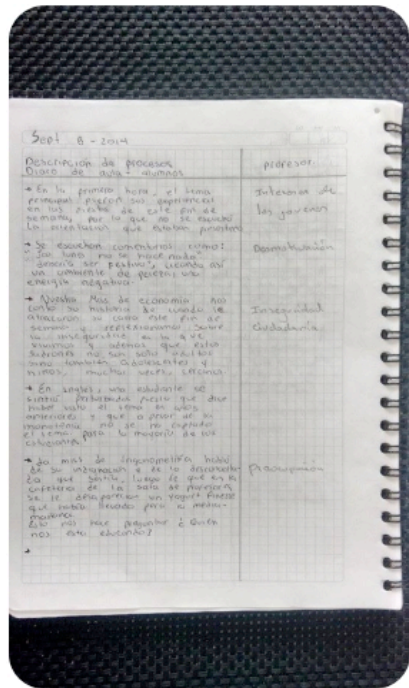 Sept 8 - 2014
Descripción de procesos
Diario de aula - alumnos
profesor
→ En la primera hora, el tema
principal fueron sus experiencias
en las fiestas de este fin de
semana, por lo que no se
la orientación que estaban
Intereses de
los jovenes
→ Se escuchan comentarios como:
"los lunes no se hace nada"
"debería ser festivo", creando así
un ambiente de pereza, una
energía negativa.
Desmotivación
→ Nuestra Miss de economía nos
contó su historia de cuando le
atracaron su casa este fin de
semana y reflexionamos sobre
la inseguridad en la que
vivimos y además que estos
ladrones no son solo adultos
sino también adolescentes y
niños, muchas veces,
Inseguridad
ciudadana
→ En ingles, una estudiante se
sintió perturbada puesto que dice
haber visto el tema en años
anteriores y que a pesar de la
monotonía no se ha captado
el tema para la mayoría de los
estudiantes.
→ La miss de trigonometría habló
de su indignación y de lo
que sentía, luego de que en la
cafetería de la sala de profesores
se le desapareciera un yogurt Finesse
que había llevado para la media-
mañana.
Esto nos hace preguntar ¿Quién
nos esta educando?
Preocupación